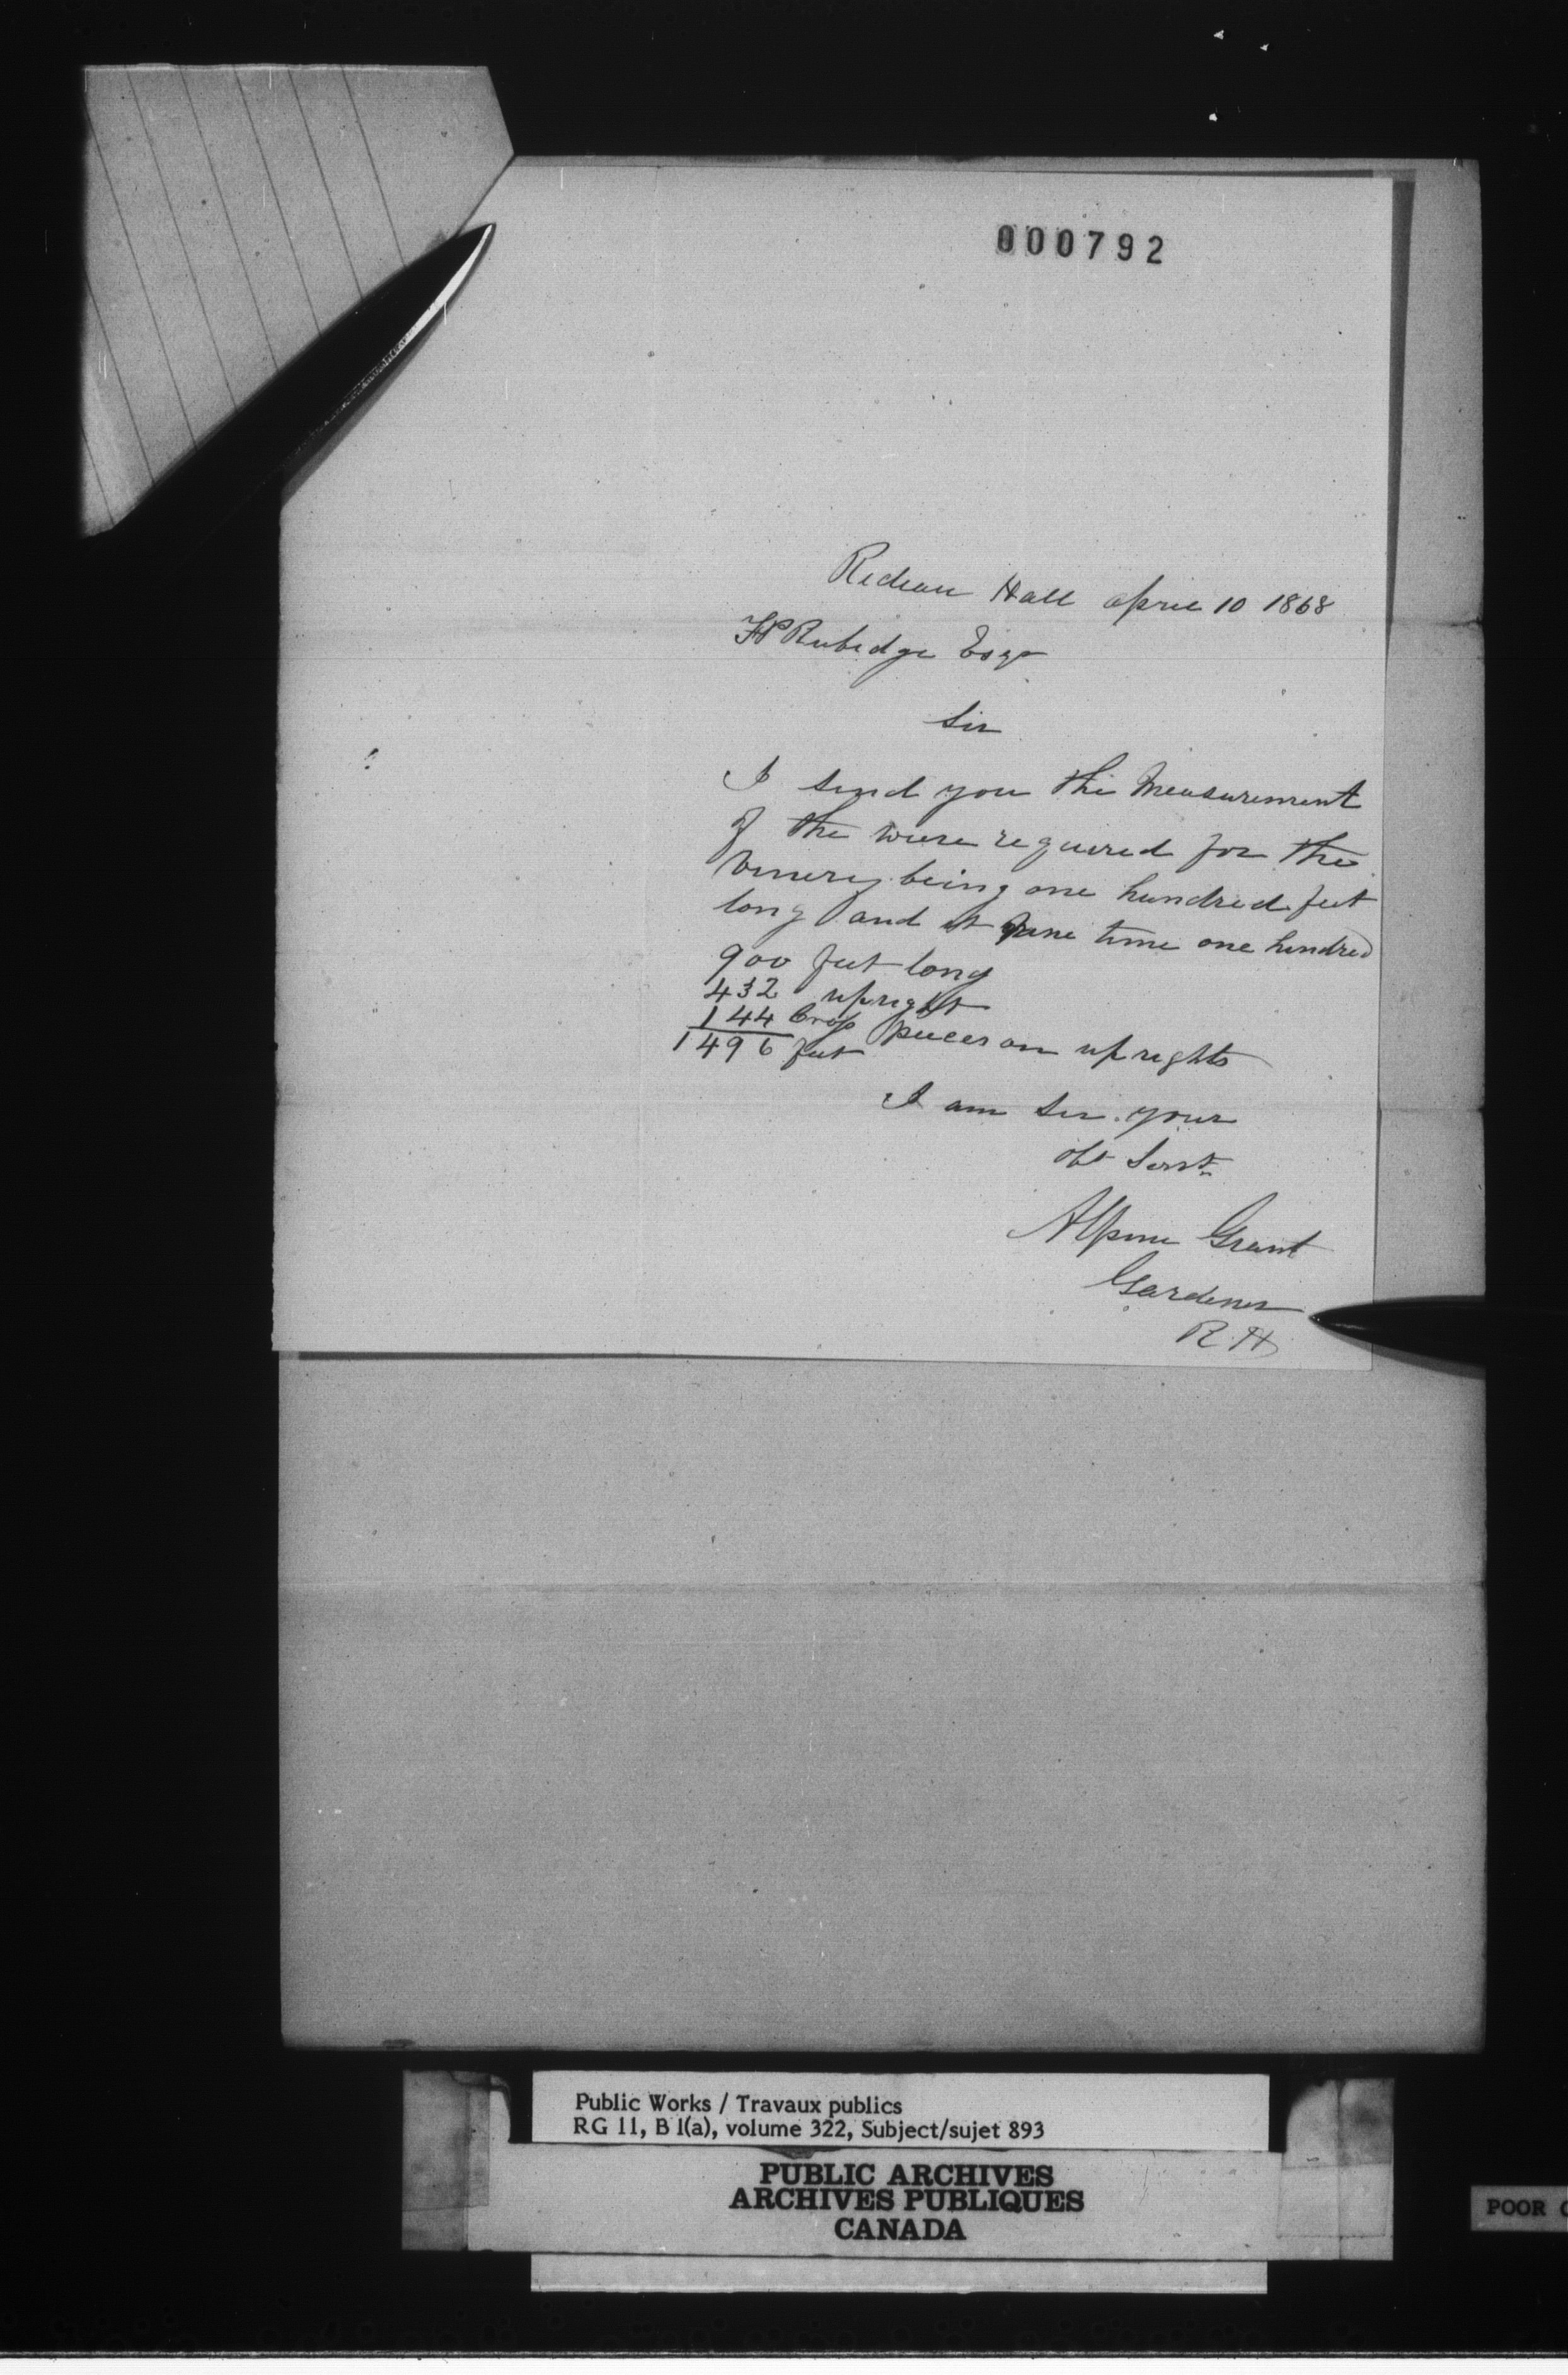 000792
Rideau Hall april 10 1868
FP Rubidge Esqr
Sir
I send you the Measurement
of the wire required for the
Vinery being one hundred feet
long and at nine time one hundred
900 feet long
432 upright
144 Crop pieces on uprights
1496 feet
I am Sir your
obt Servt
Alpine Grant
Gardener
R. H
Public Works / Travaux publics
RG 11, B 1(a), volume 322, Subject/sujet 893
PUBLIC ARCHIVES
ARCHIVES PUBLIQUES
CANADA
POOR